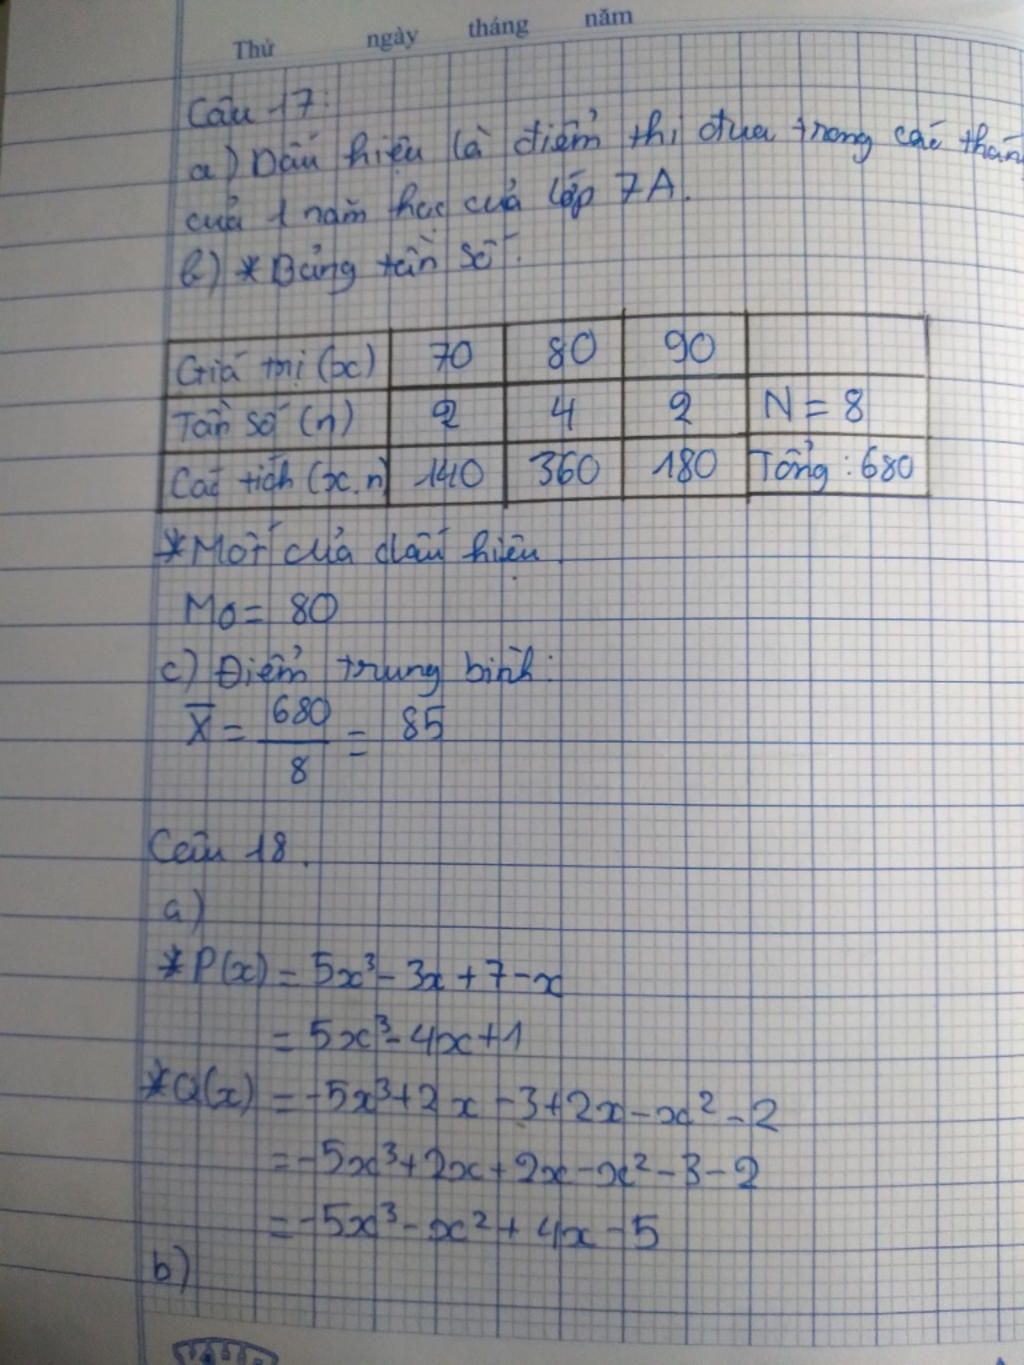 Thứ ngày tháng năm
Câu 17:
a) Dấu hiệu là điểm thi đua trong các thán
của 1 năm học của lớp 7A.
b) * Bảng tần số:
Giá trị (x) 70 80 90
Tần số (n) 2 4 2 N = 8
Các tích (x.n) 140 360 180 Tổng: 680
* Mốt của dấu hiệu
Mo = 80
c) Điểm trung bình:
X̄ = 680/8 = 85
Câu 18.
a)
* P(x) = 5x³ - 3x + 7 - x
= 5x³ - 4x + 1
* Q(x) = -5x³ + 2x - 3 + 2x - x² - 2
= -5x³ + 2x + 2x - x² - 3 - 2
= -5x³ - x² + 4x - 5
b)